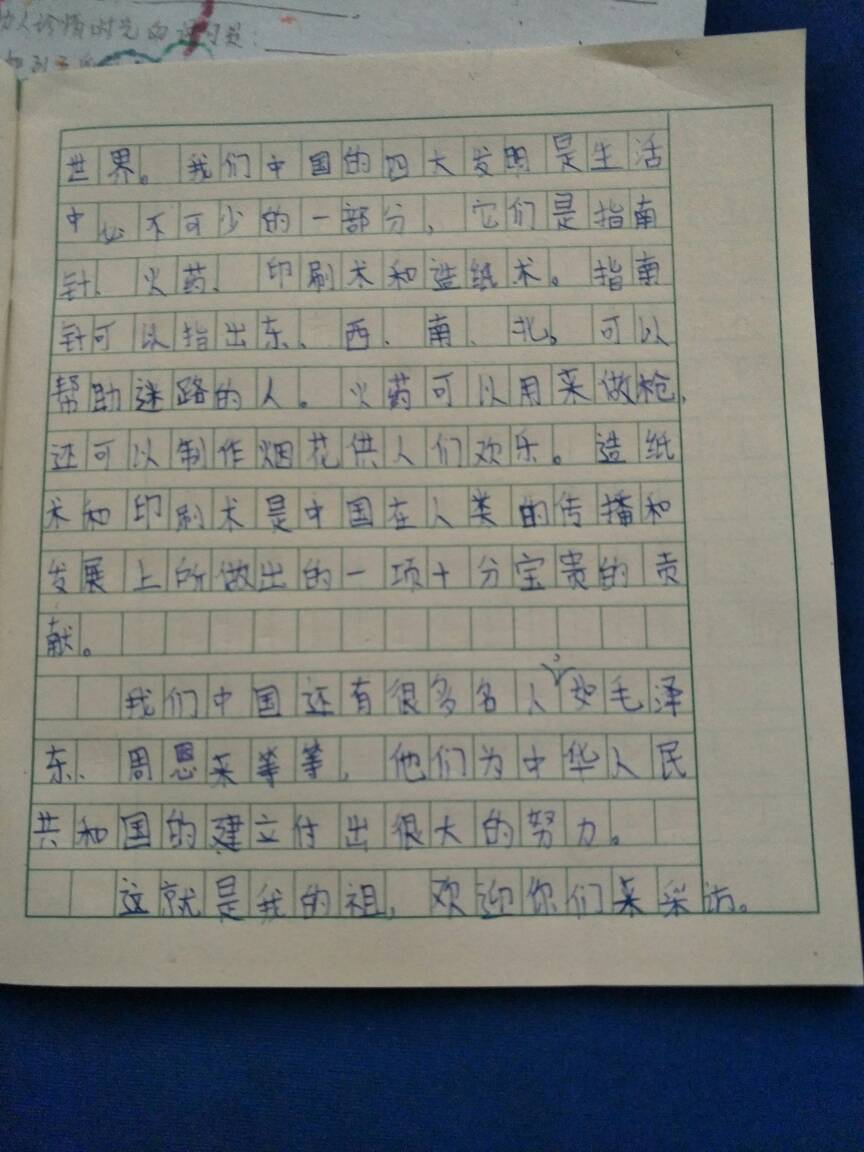 世界。我们中国的四大发明是生活
中必不可少的一部分，它们是指南
针、火药、印刷术和造纸术。指南
针可以指出东、西、南、北，可以
帮助迷路的人。火药可以用来做枪，
还可以制作烟花供人们欢乐。造纸
术和印刷术是中国在人类的传播和
发展上所做出的一项十分宝贵的贡
献。
我们中国还有很多名人，如毛泽
东、周恩来等等，他们为中华人民
共和国的建立付出很大的努力。
这就是我的祖，欢迎你们来采访。